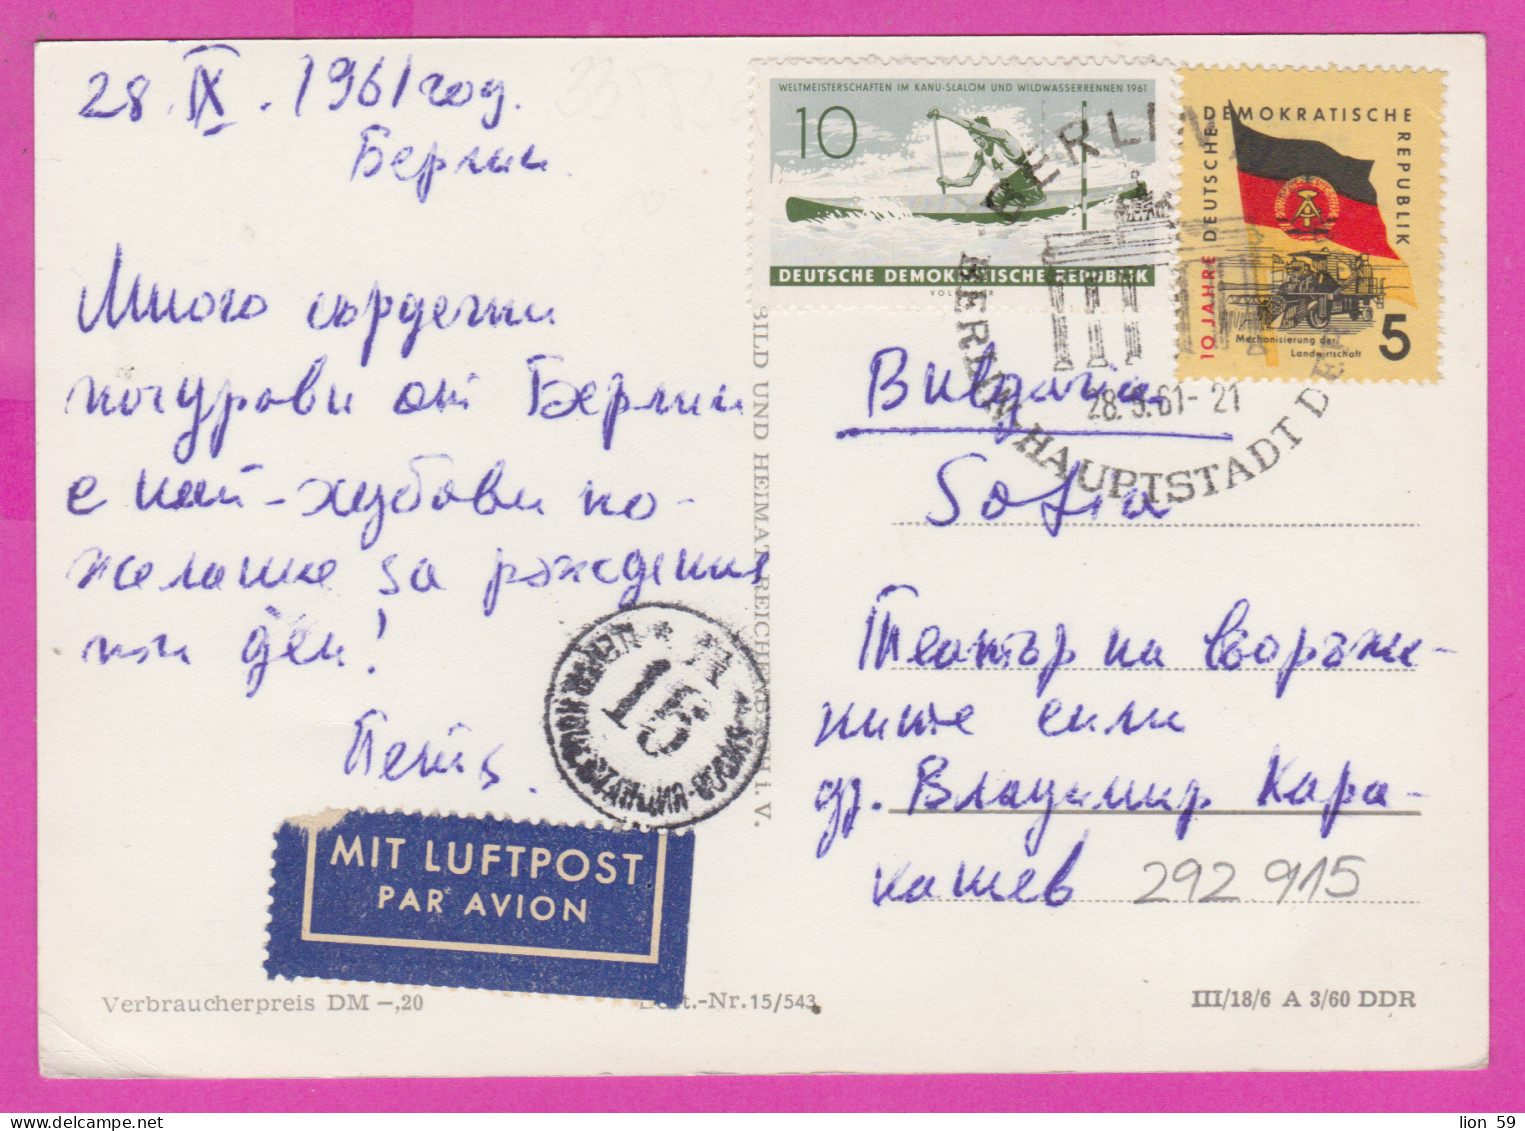 28. IX. 1961 год.
Берлин
Много сърдечни
поздрави от Берлин
с най-хубави по-
желание за рождения
ти ден!
Петя.
MIT LUFTPOST
PAR AVION
Verbraucherpreis DM –,20
t.-Nr. 15/543
15
BILD UND HEIMAT REICHENBACH i. V.
WELTMEISTERSCHAFTEN IM KANU-SLALOM UND WILDWASSERRENNEN 1961
10
DEUTSCHE DEMOKRATISCHE REPUBLIK
10 JAHRE DEUTSCHE DEMOKRATISCHE REPUBLIK
Mechanisierung der
Landwirtschaft
5
BERLIN
BERLIN-HAUPTSTADT DER
28.9.61-21
Bulgaria
Sofia
Театър на въоръже-
ните сили
др. Владимир Кара-
кашев
292 915
III/18/6 A 3/60 DDR
lion 59